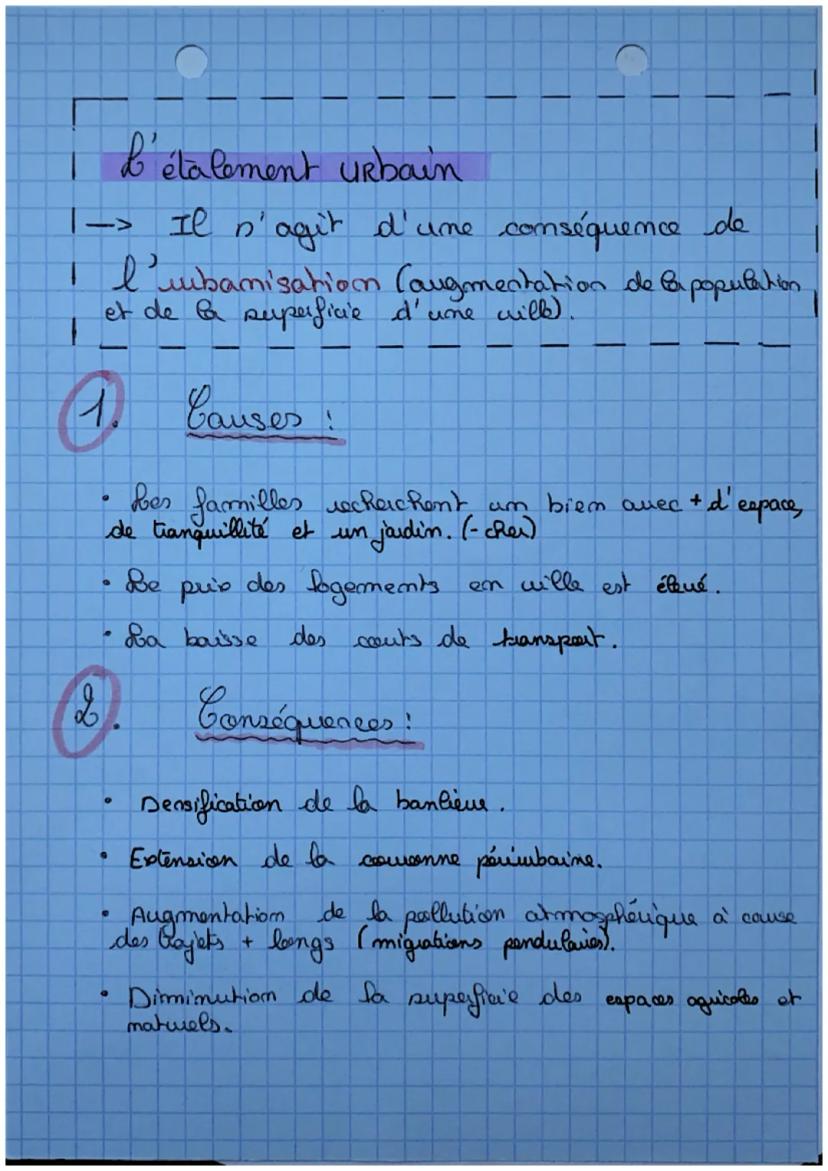 L'étalement urbain
--> Il s'agit d'une conséquence de
l'urbanisation (augmentation de la population
et de la superficie d'une ville).
1. Causes :
• Les familles recherchent un bien avec + d'espace,
de tranquillité et un jardin. (- cher)
• Le prix des logements en ville est élevé.
• La baisse des couts de transport.
2. Conséquences :
• Densification de la banlieue.
• Extension de la couronne périurbaine.
• Augmentation de la pollution atmosphérique à cause
des trajets + longs (migrations pendulaires).
• Dimimution de la superficie des espaces agricoles et
naturels.